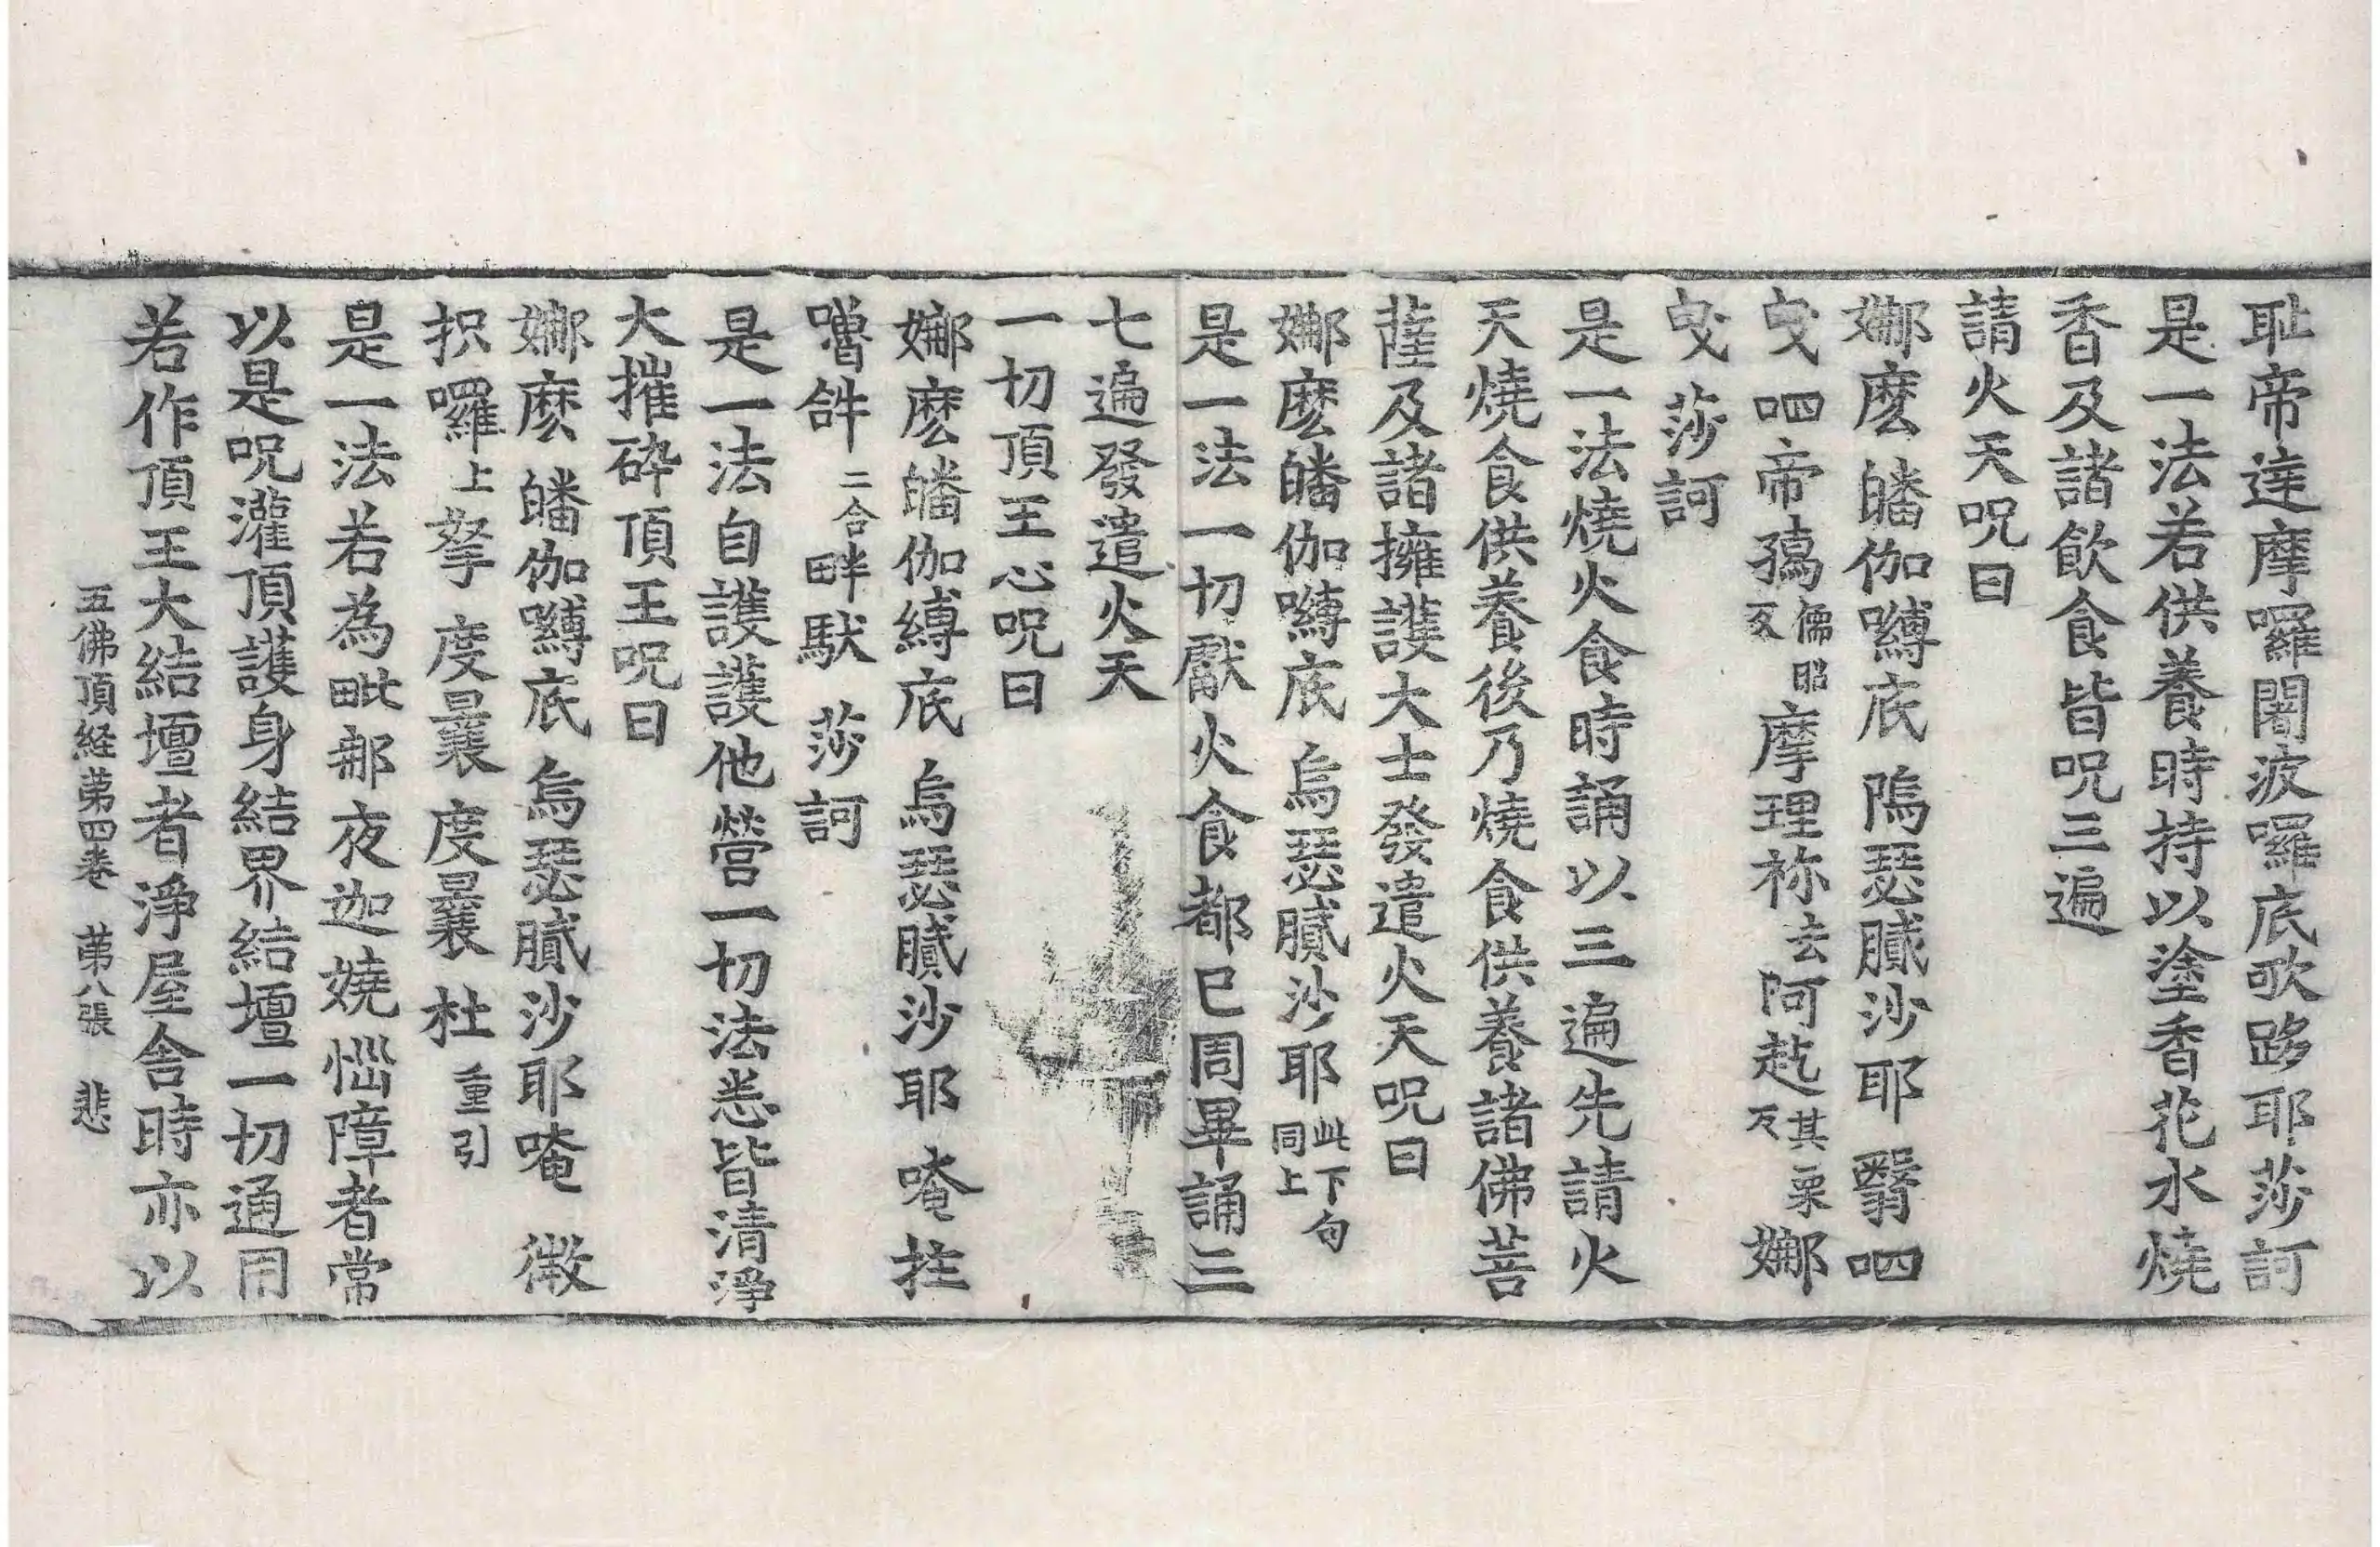 耻帝達摩囉闍波囉底歌跢耶莎訶
是一法若供養時持以塗香花水燒
香及諸飲食皆呪三遍
請火天呪曰
娜麼皤伽嚩底 隖瑟膩沙耶 翳呬
曳呬帝孺儒照反摩理祢去阿趍其栗反娜
曳 莎訶
是一法燒火食時誦以三遍先請火
天燒食供養後乃燒食供養諸佛菩
薩及諸擁護大士發遣火天呪曰
娜麼皤伽嚩底 烏瑟膩沙耶此下句同上
是一法一切獻火食都已周畢誦三
七遍發遣火天
一切頂王心呪曰
娜麼皤伽縛底 烏瑟膩沙耶 唵拄
噜䤈二合畔馱 莎訶
是一法自護護他營一切法悉皆清淨
大摧碎頂王呪曰
娜麼皤伽嚩底 烏瑟膩沙耶唵 微
抧囉上拏 度曩 度曩 杜重引
是一法若為毗那夜迦嬈惱障者常
以是呪灌頂護身結界結壇一切通用
若作頂王大結壇者淨屋舍時亦以
五佛頂経第四卷 第八張 悲